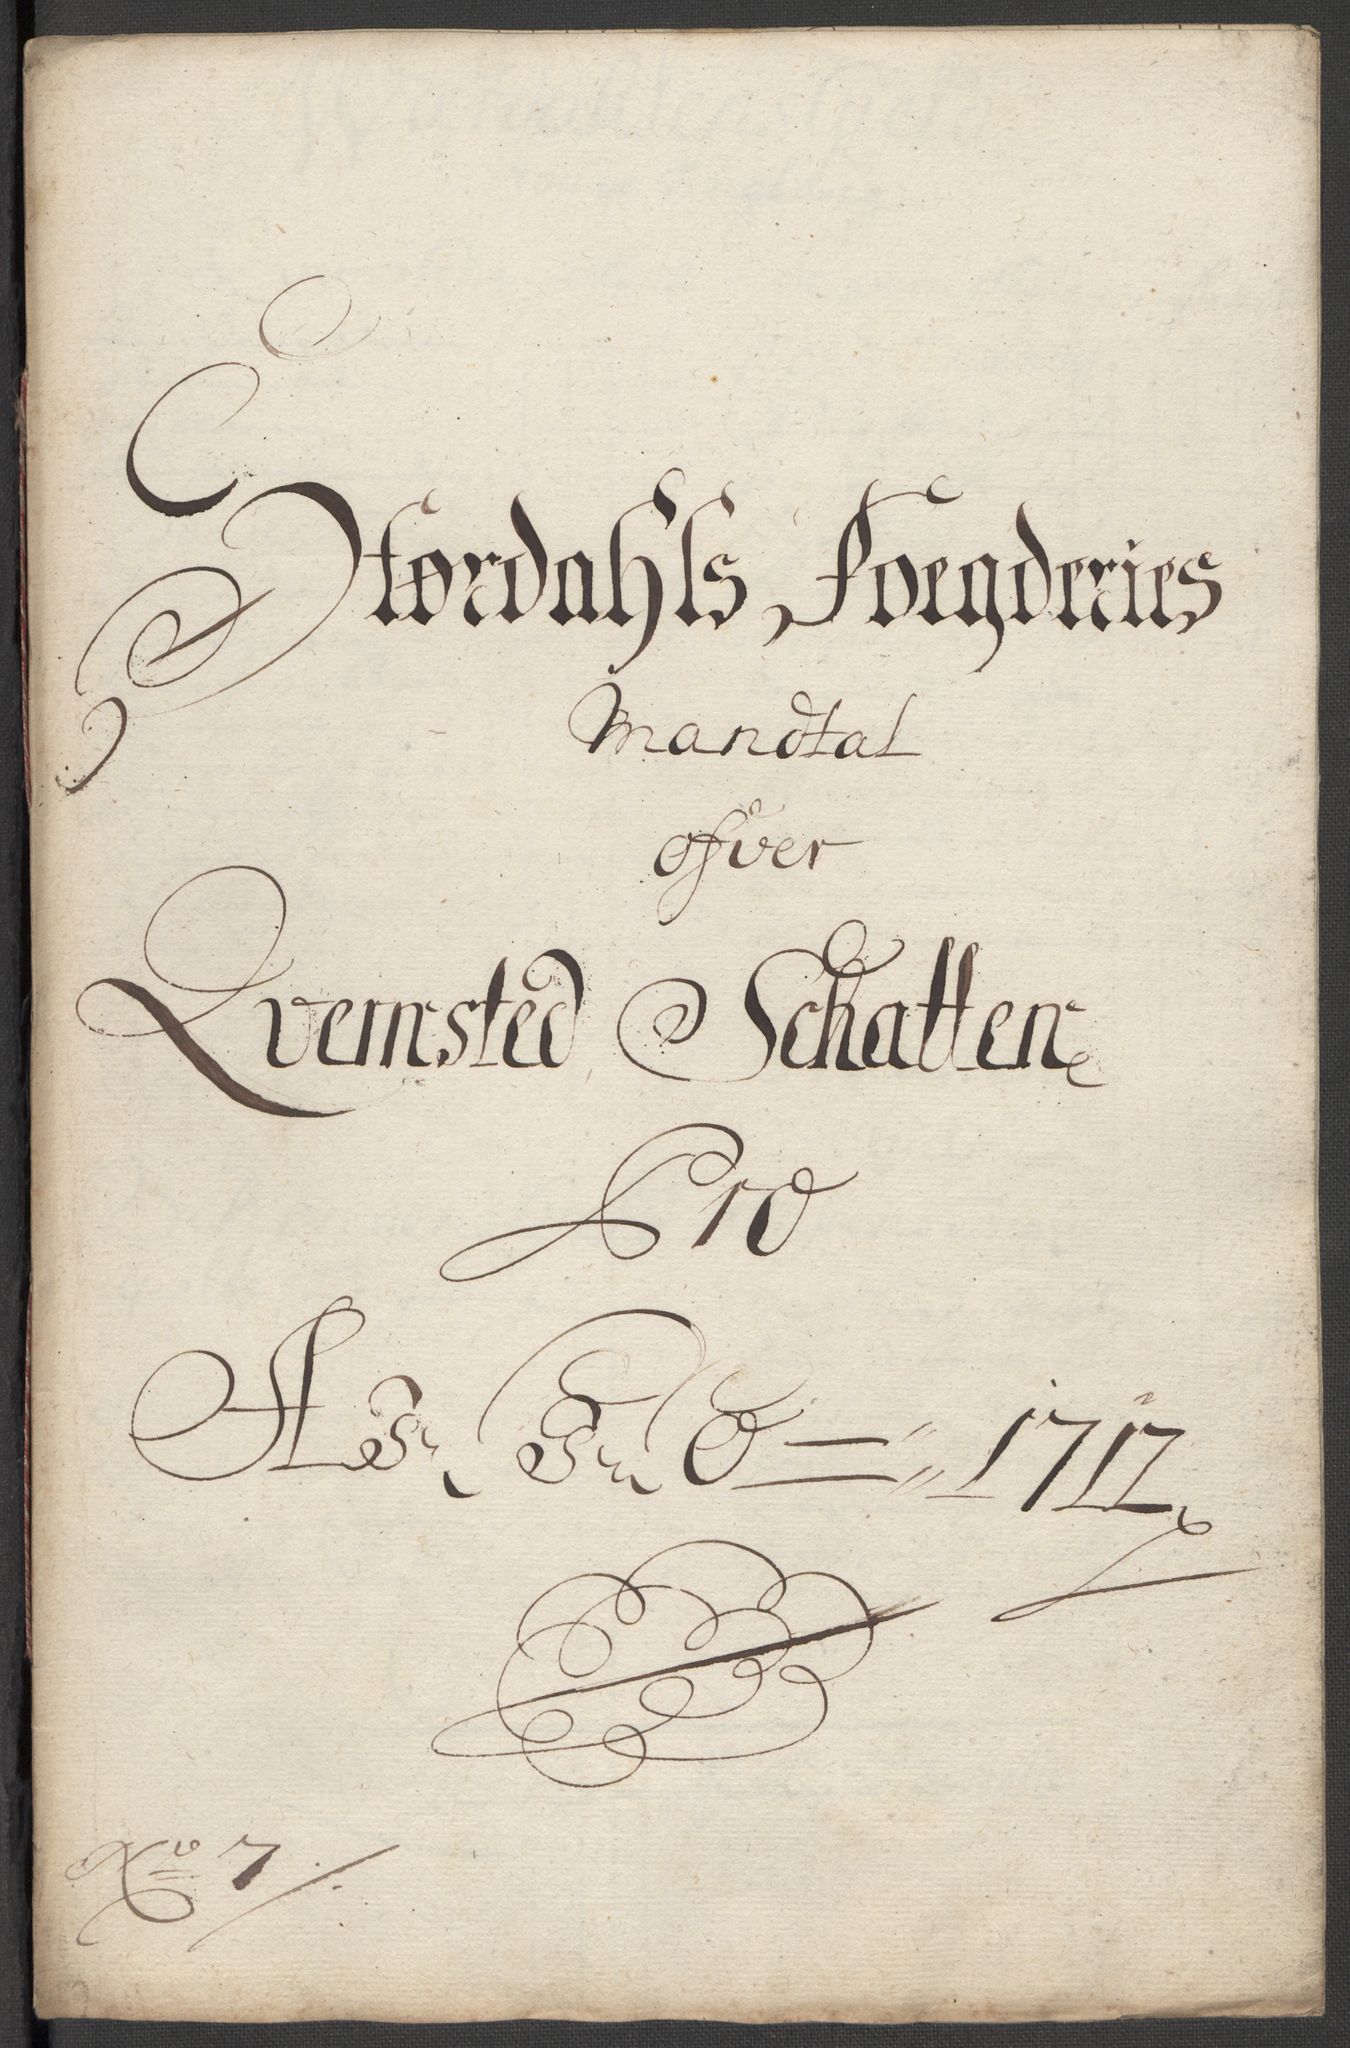 Størdahls Foegderies
Mandtal
ofver
Qvernsted Schatten
Pro
Anno 1717
No 7